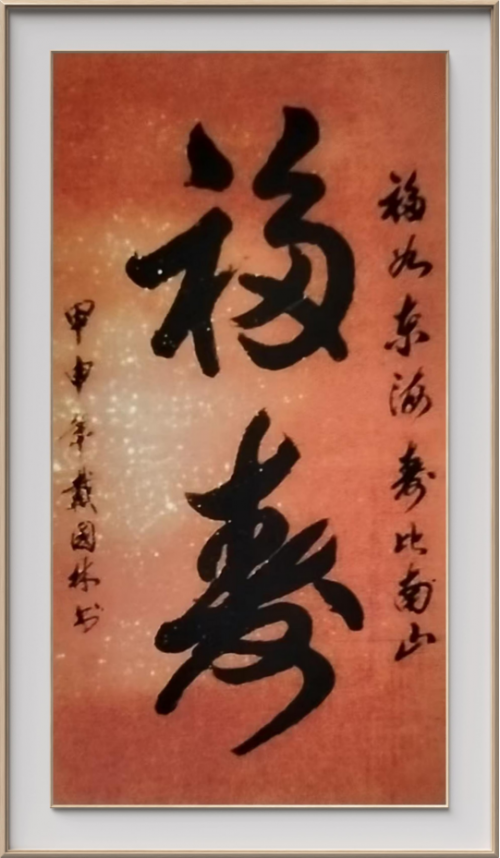 福如东海寿比南山
福寿
甲申年戴国林书